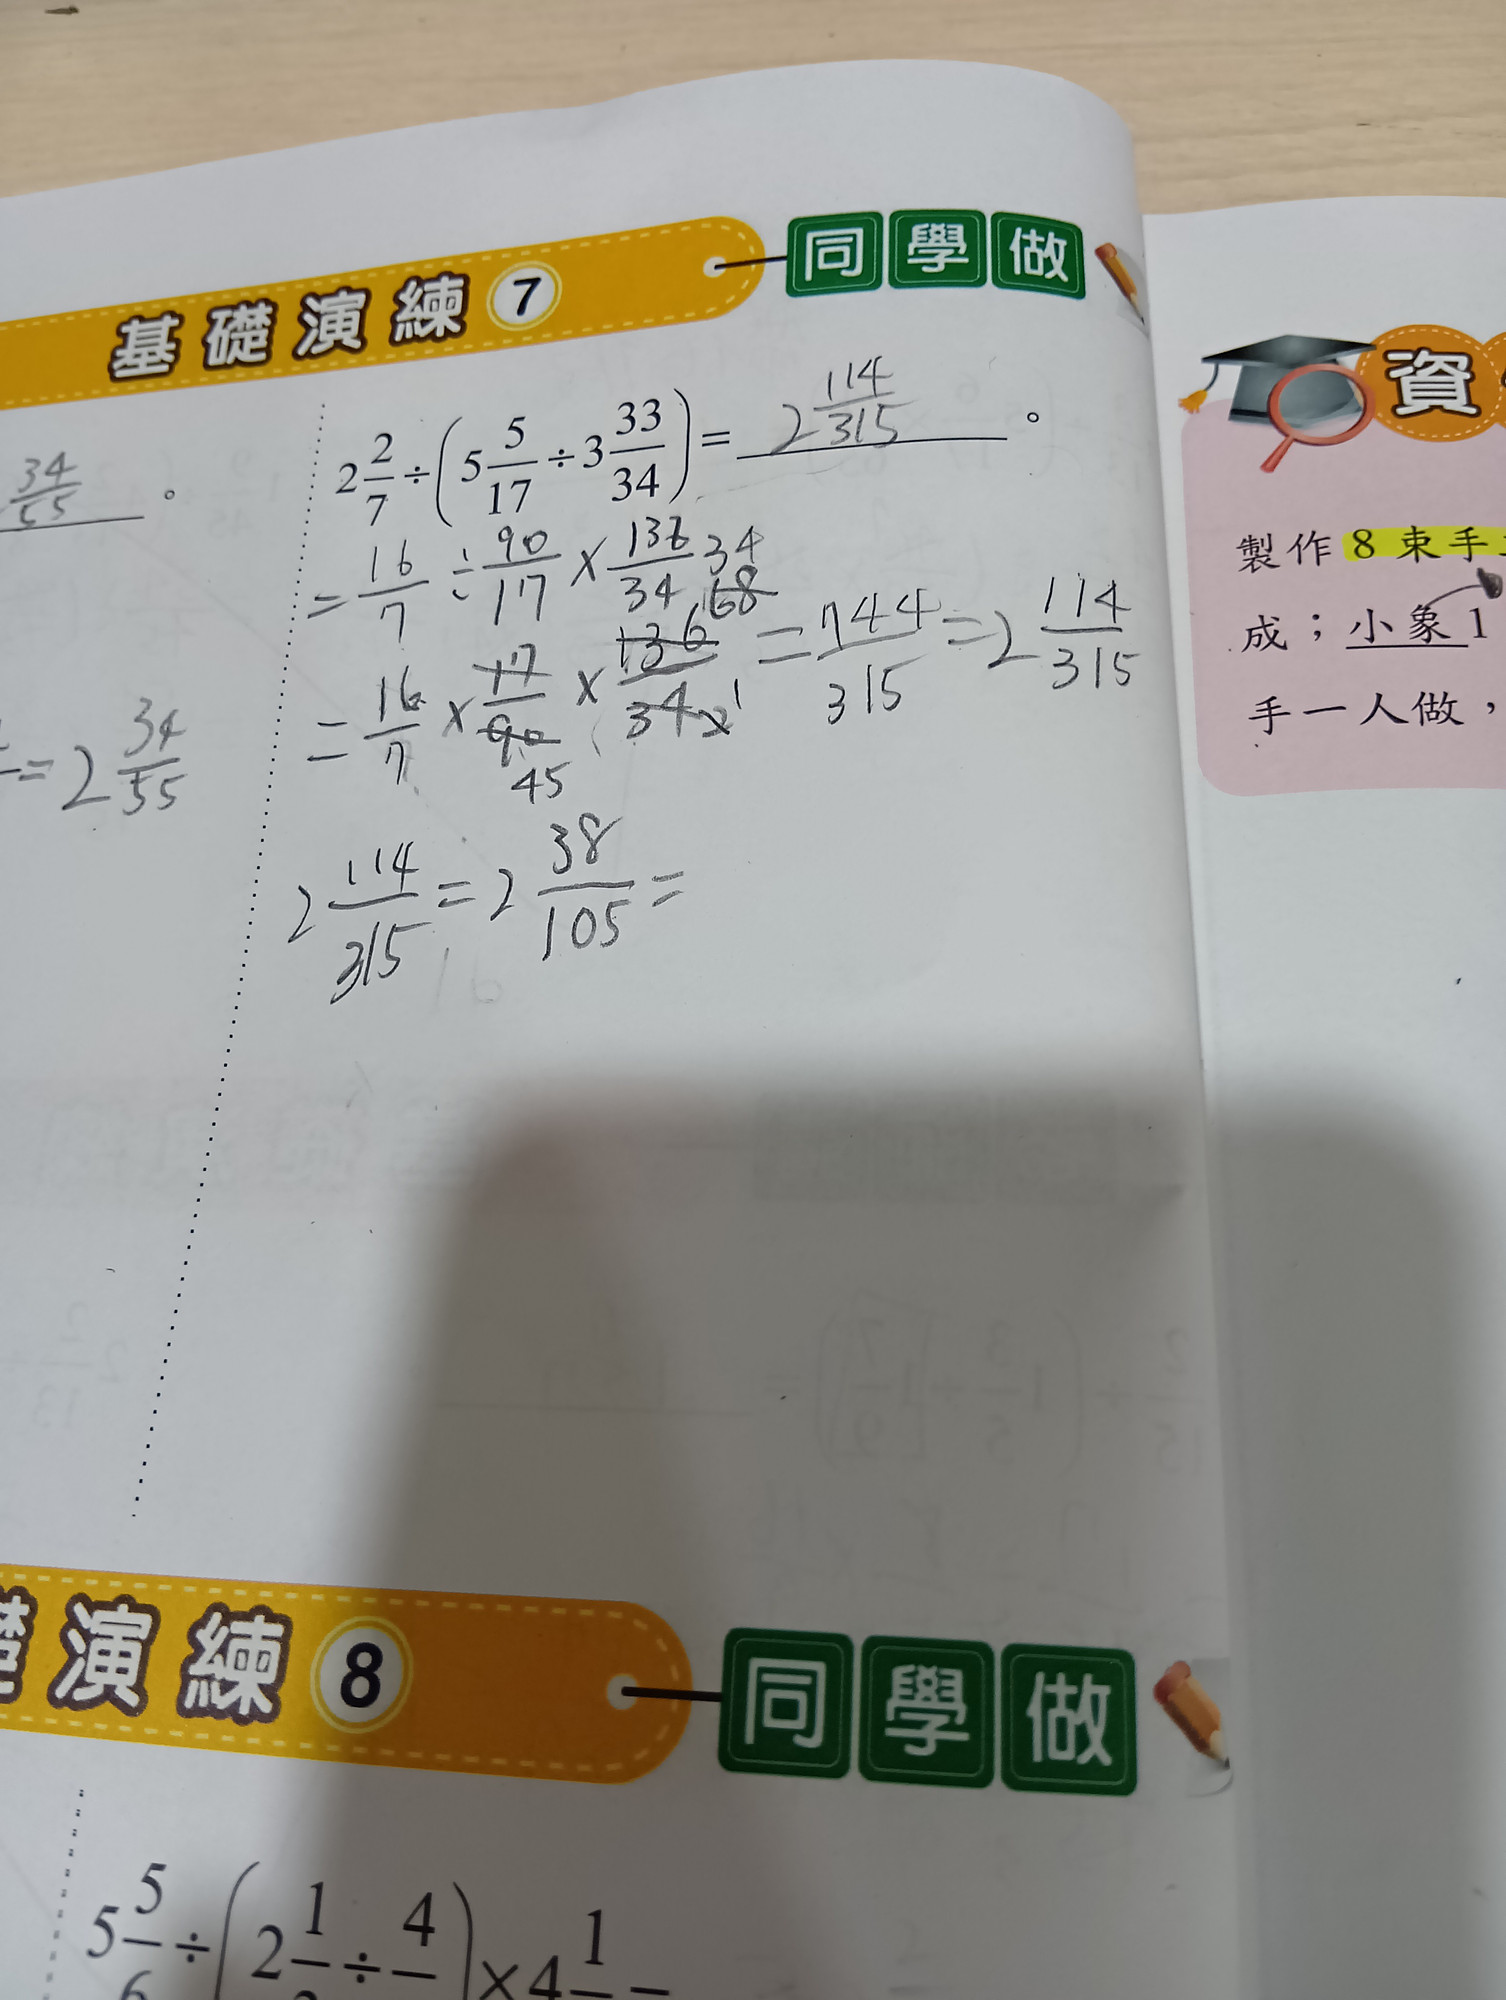 基礎演練 7 同學做
資
34/55 。
2 2/7 ÷ ( 5 5/17 ÷ 3 33/34 ) = 2 114/315 。
= 16/7 ÷ 90/17 × 136/34 34
68
= 16/7 × 17/90 × 136/34 2 1 = 744/315 = 2 114/315
45
= 2 34/55
2 114/315 = 2 38/105 =
製作 8 束手
成；小象 1
手一人做，
演練 8 同學做
5 5/6 ÷ ( 2 1 ÷ 4 ) × 4 1